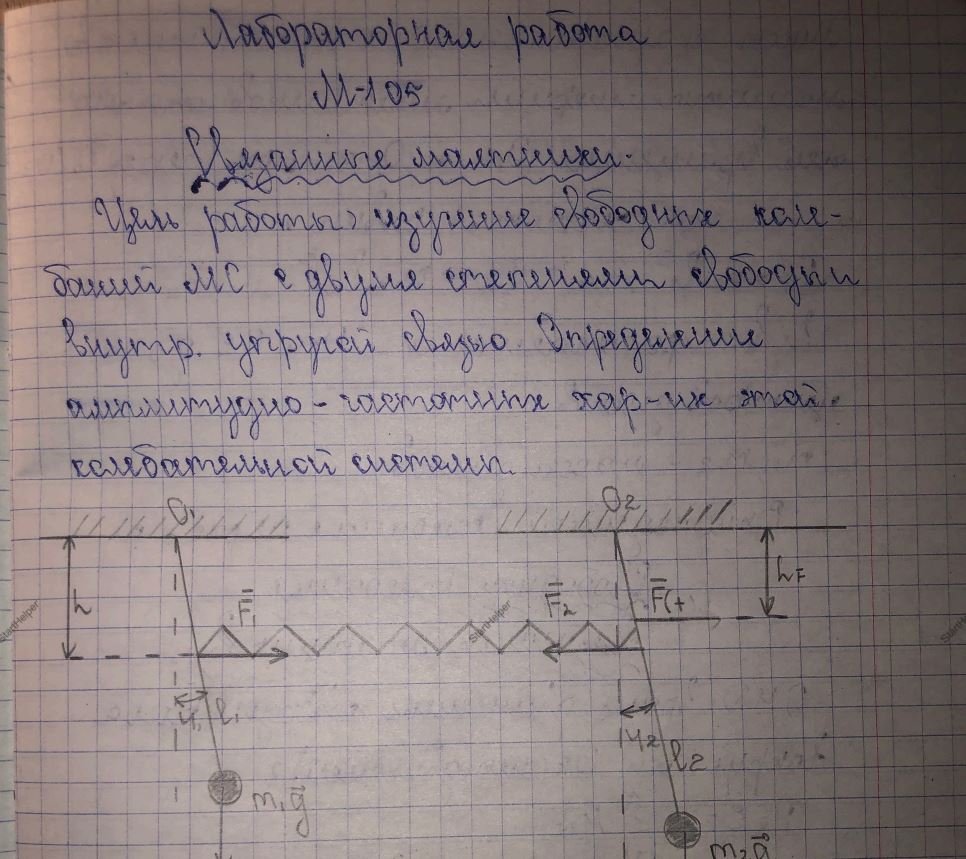 Лабораторная работа
М-105
Связанные маятники.
Цель работы: изучение свободных коле-
баний МС с двумя степенями свободы и
внутр. упругой связью. Определение
амплитудно-частотных хар-ик этой
колебательной системы.
O₁ O₂
h F̄₁ F̄₂ F̄(t) h_F
φ₁ l₁ φ₂ l₂
m₁ḡ
m₂ḡ
StartHelper
StartHelper
StartHelper